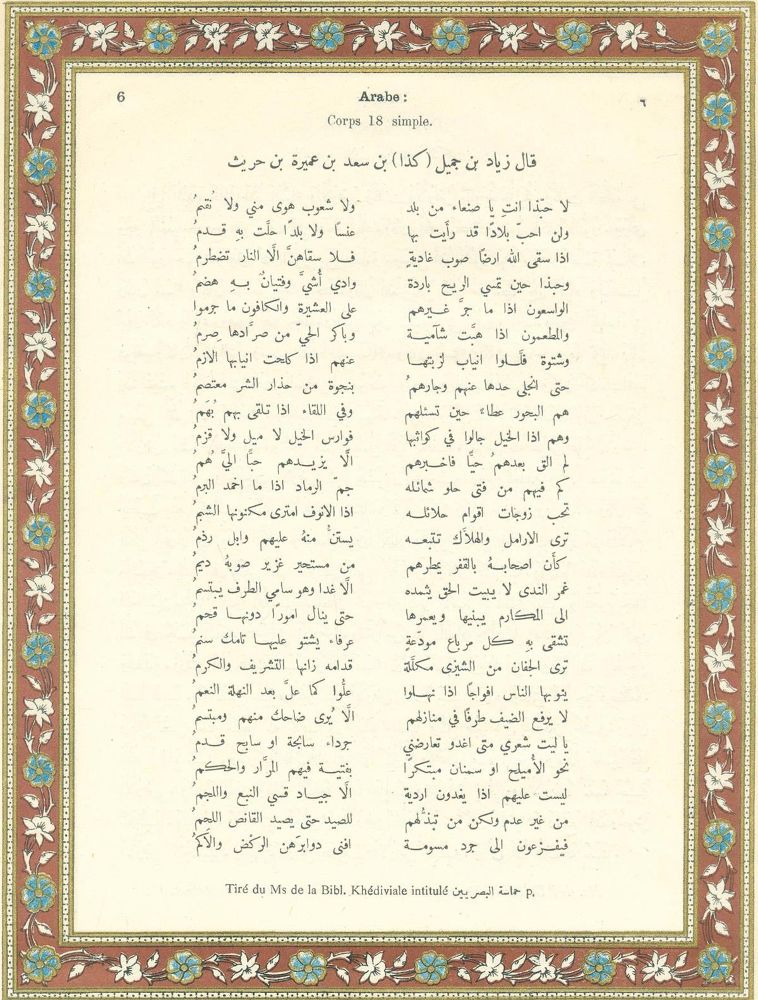 6
Arabe:
٦
Corps 18 simple.
قال زياد بن جميل (كذا) بن سعد بن عميرة بن حريث
لا حبّذا انتِ يا صنعاء من بلد ولا شعوب هوى مني ولا نُقُمُ
ولن احبّ بلادًا قد رأَيت بها عنسًا ولا بلدًا حلَّت بهِ قدمُ
اذا سقى الله ارضًا صوب غاديةٍ فلا سقاهنَّ الَّا النار تضطرمُ
وحبذا حين تمسي الريح باردة وادي أُشيّ وفتيانٌ بهِ هضمُ
الواسعون اذا ما جرَّ غيرهم على العشيرة والكافون ما جرموا
والمطعمون اذا هبَّت شآمية وباكر الحيّ من صرَّادها صِرمُ
وشتوة فلَّلوا انياب لزبتها عنهم اذا كلحت انيابها الازمُ
حتى انجلى حدها عنهم وجارهمُ بنجوة من حذار الشر معتصمُ
هم البحور عطاءً حين تسئلهم وفي اللقاء اذا تلقى بهم بُهَمُ
وهم اذا الخيل جالوا في كواثبها فوارس الخيل لا ميل ولا قزمُ
لم الق بعدهمُ حيًّا فاخبرهم الَّا يزيدهم حبًّا اليَّ هُمُ
كم فيهم من فتى حلو شمائله جمّ الرماد اذا ما اخمد البرمُ
تحب زوجات اقوام حلائله اذا الانوف امترى مكنونها الشبمُ
ترى الارامل والهلاَّك تتبعه يستنُّ منهُ عليهم وابل رذمُ
كأَن اصحابهُ بالقفر يمطرهم من مستحير غزير صوبهُ ديمُ
غمر الندى لا يبيت الحق يثمده الَّا غدا وهو سامي الطرف يبتسمُ
الى المكارم يبنيها ويعمرها حتى ينال امورًا دونها قحمُ
تشقى بهِ كل مرباع مودّعةٍ عرفاء يشتو عليها تامك سنمُ
ترى الجفان من الشيزى مكلَّلة قدامه زانها التشريف والكرمُ
ينوبها الناس افواجًا اذا نهلوا علُّوا كما علَّ بعد النهلة النعمُ
لا يرفع الضيف طرفًا في منازلهم الَّا يُرى ضاحك منهم ومبتسمُ
يا ليت شعري متى اغدو تعارضني جرداء سابحة او سابح قدمُ
نحو الأميلح او سمنان مبتكرًا بفتية فيهم المرَّار والحكمُ
ليست عليهم اذا يغدون اردية الَّا جياد قسي النبع واللجمُ
من غير عدم ولكن من تبذّلهم للصيد حتى يصيد القانص اللحمُ
فيفزعون الى جرد مسومة افنى دوابرهن الركض والأكمُ
Tiré du Ms de la Bibl. Khédiviale intitulé حماسة البصريين p.